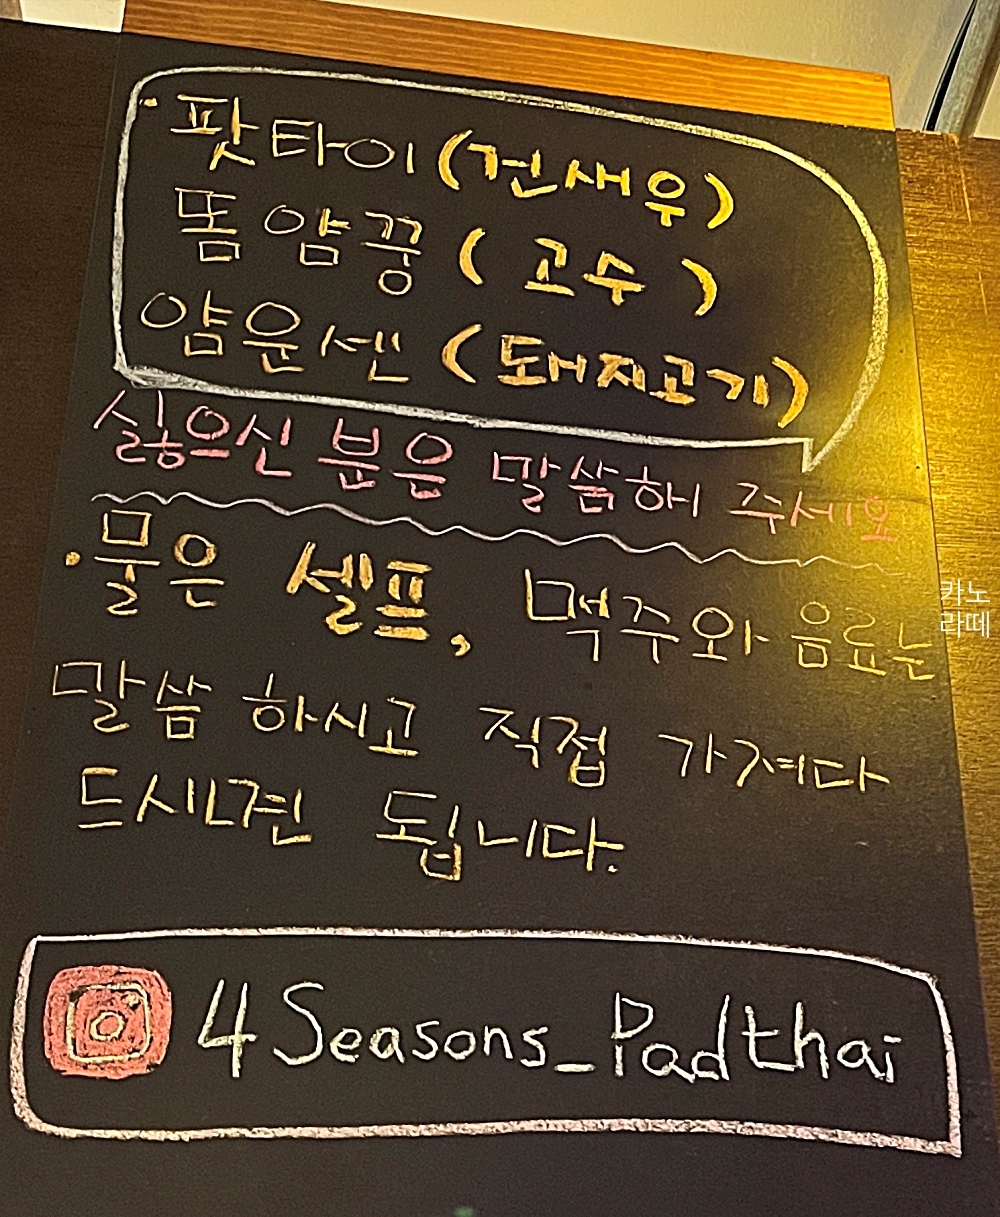 · 팟타이 (건새우)
똠얌꿍 ( 고수 )
얌운센 (돼지고기)
싫으신 분은 말씀해 주세요
· 물은 셀프, 맥주와 음료는
말씀 하시고 직접 가져다
드시면 됩니다.
4Seasons_Padthai
카노
라떼